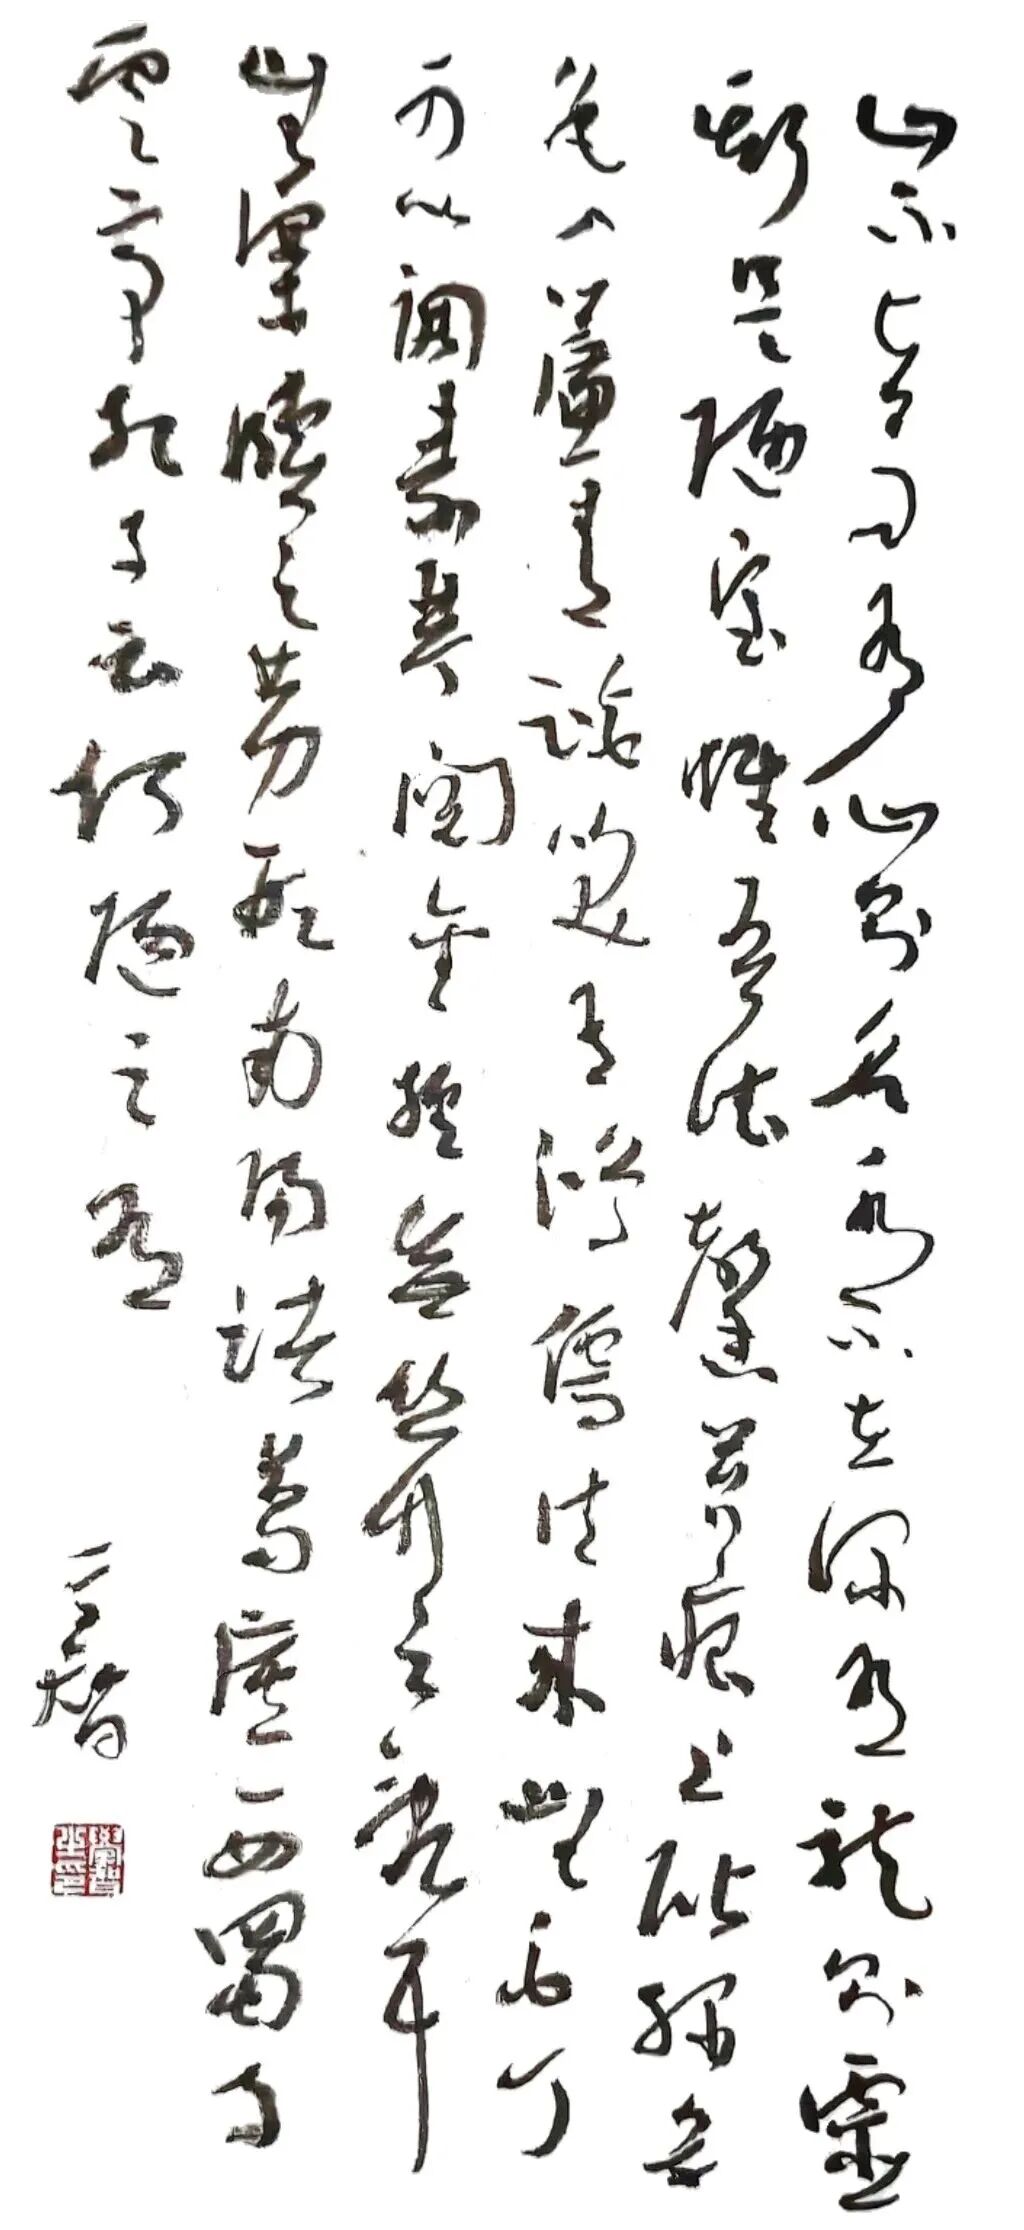 山不在高有仙則名水不在深有龍則靈
斯是陋室惟吾德馨苔痕上階綠草
色入簾青談笑有鴻儒往來無白丁
可以調素琴閱金經無絲竹之亂耳
無案牘之勞形南陽諸葛廬西蜀子
雲亭孔子云何陋之有
智